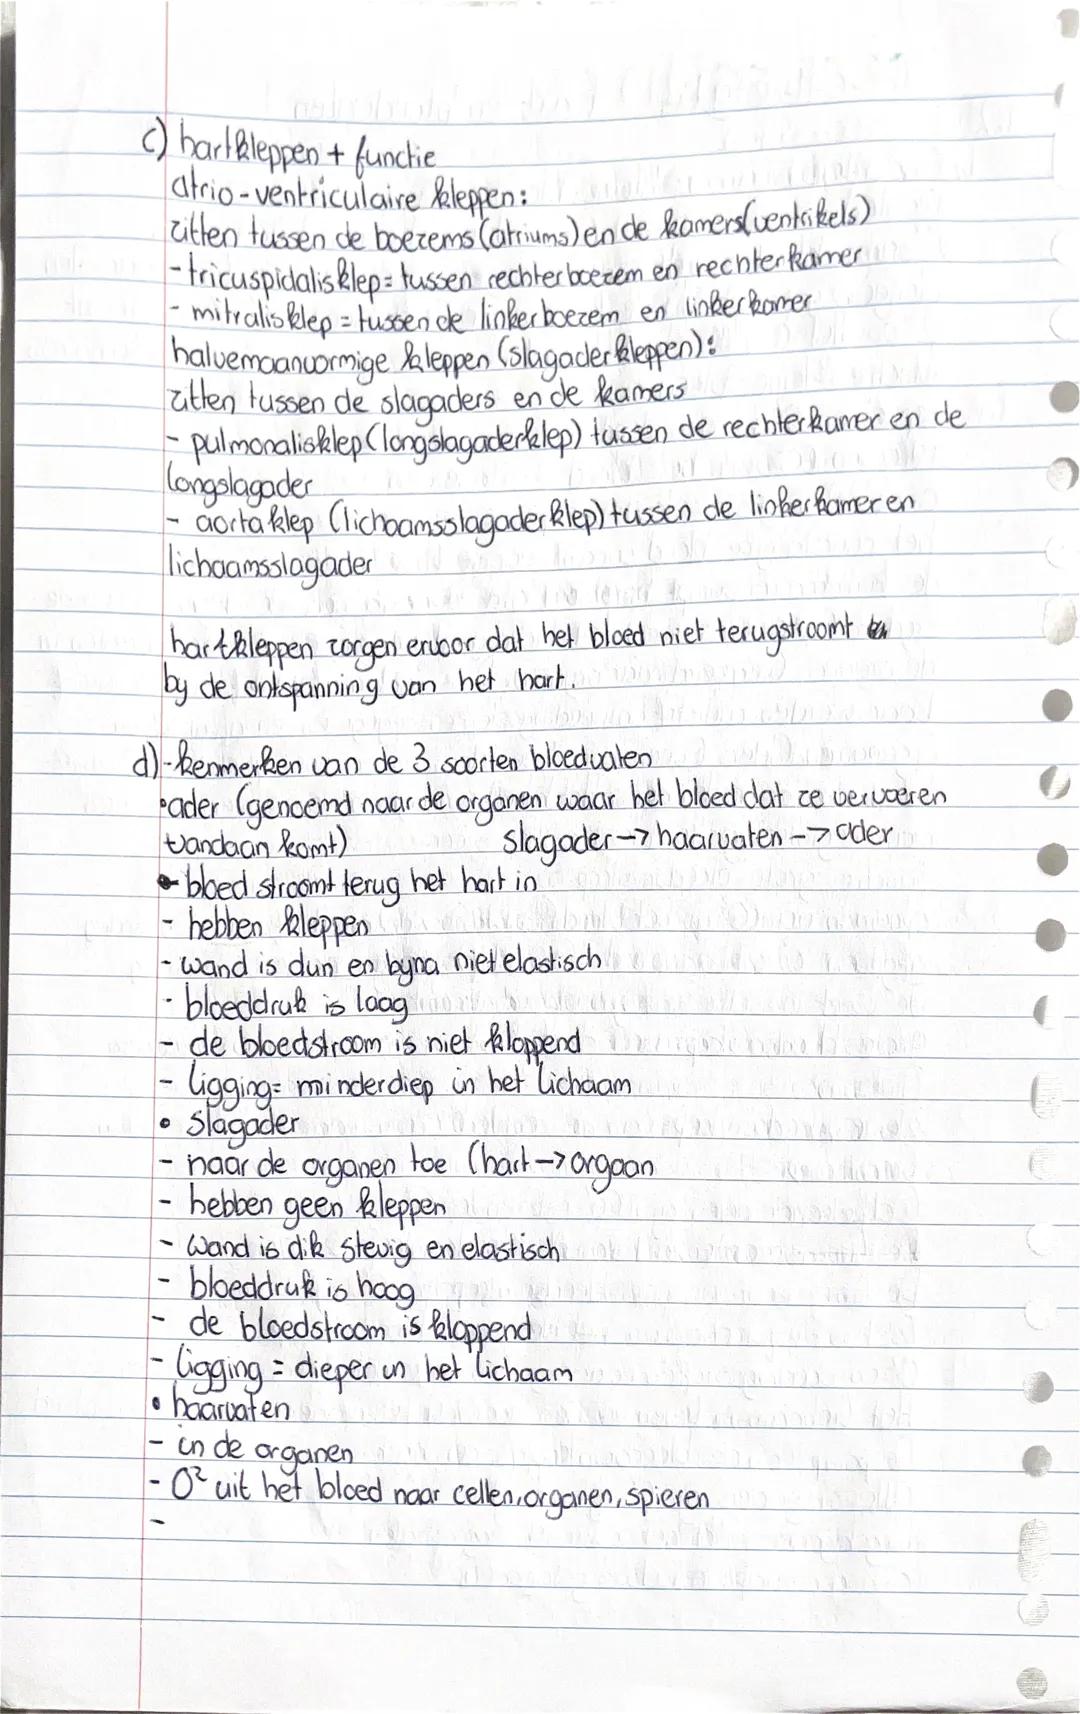 c) hartkleppen + functie
atrio-ventriculaire kleppen:
zitten tussen de boezems (atriums) en de kamers (ventrikels)
- tricuspidalisklep = tussen rechterboezem en rechterkamer
- mitralisklep = tussen de linkerboezem en linkerkamer
halvemaanvormige kleppen (slagaderkleppen):
zitten tussen de slagaders en de kamers
- pulmonalisklep (longslagaderklep) tussen de rechterkamer en de
longslagader
- aortaklep (lichaamsslagaderklep) tussen de linkerkamer en
lichaamsslagader
hartkleppen zorgen ervoor dat het bloed niet terugstroomt
by de ontspanning van het hart.
d) - kenmerken van de 3 soorten bloedvaten
• ader (genoemd naar de organen waar het bloed dat ze vervoeren
vandaan komt) slagader → haarvaten → ader
- bloed stroomt terug het hart in
- hebben kleppen
- wand is dun en byna niet elastisch
- bloeddruk is laag
- de bloedstroom is niet kloppend
- ligging = minder diep in het lichaam
• slagader
- naar de organen toe (hart → orgaan
- hebben geen kleppen
- wand is dik stevig en elastisch
- bloeddruk is hoog
- de bloedstroom is kloppend
- ligging = dieper in het lichaam
• haarvaten
- in de organen
- O² uit het bloed naar cellen, organen, spieren
-